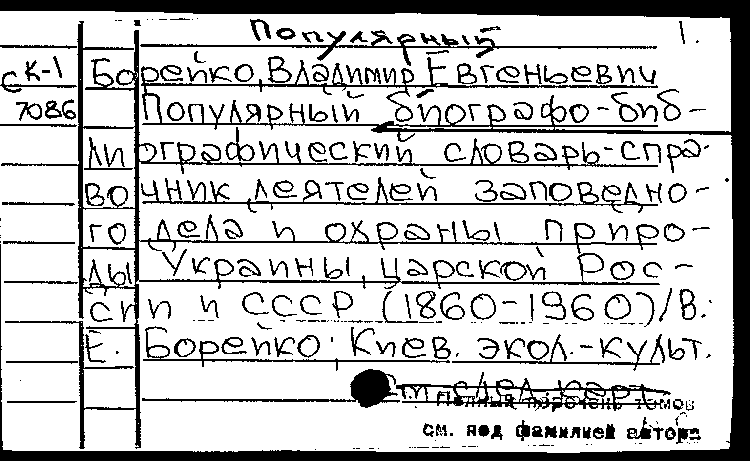 Популярный 1.
СК-1 Борейко, Владимир Евгеньевич
7086 Популярный биографо-биб-
лиографический словарь-спра-
вочник деятелей заповедно-
го дела и охраны приро-
ды Украины, царской Рос-
сии и СССР (1860-1960)/В.
Е. Борейко; Киев. экол.-культ.
см. след. карт.
Полный перечень томов
см. под фамилией автора